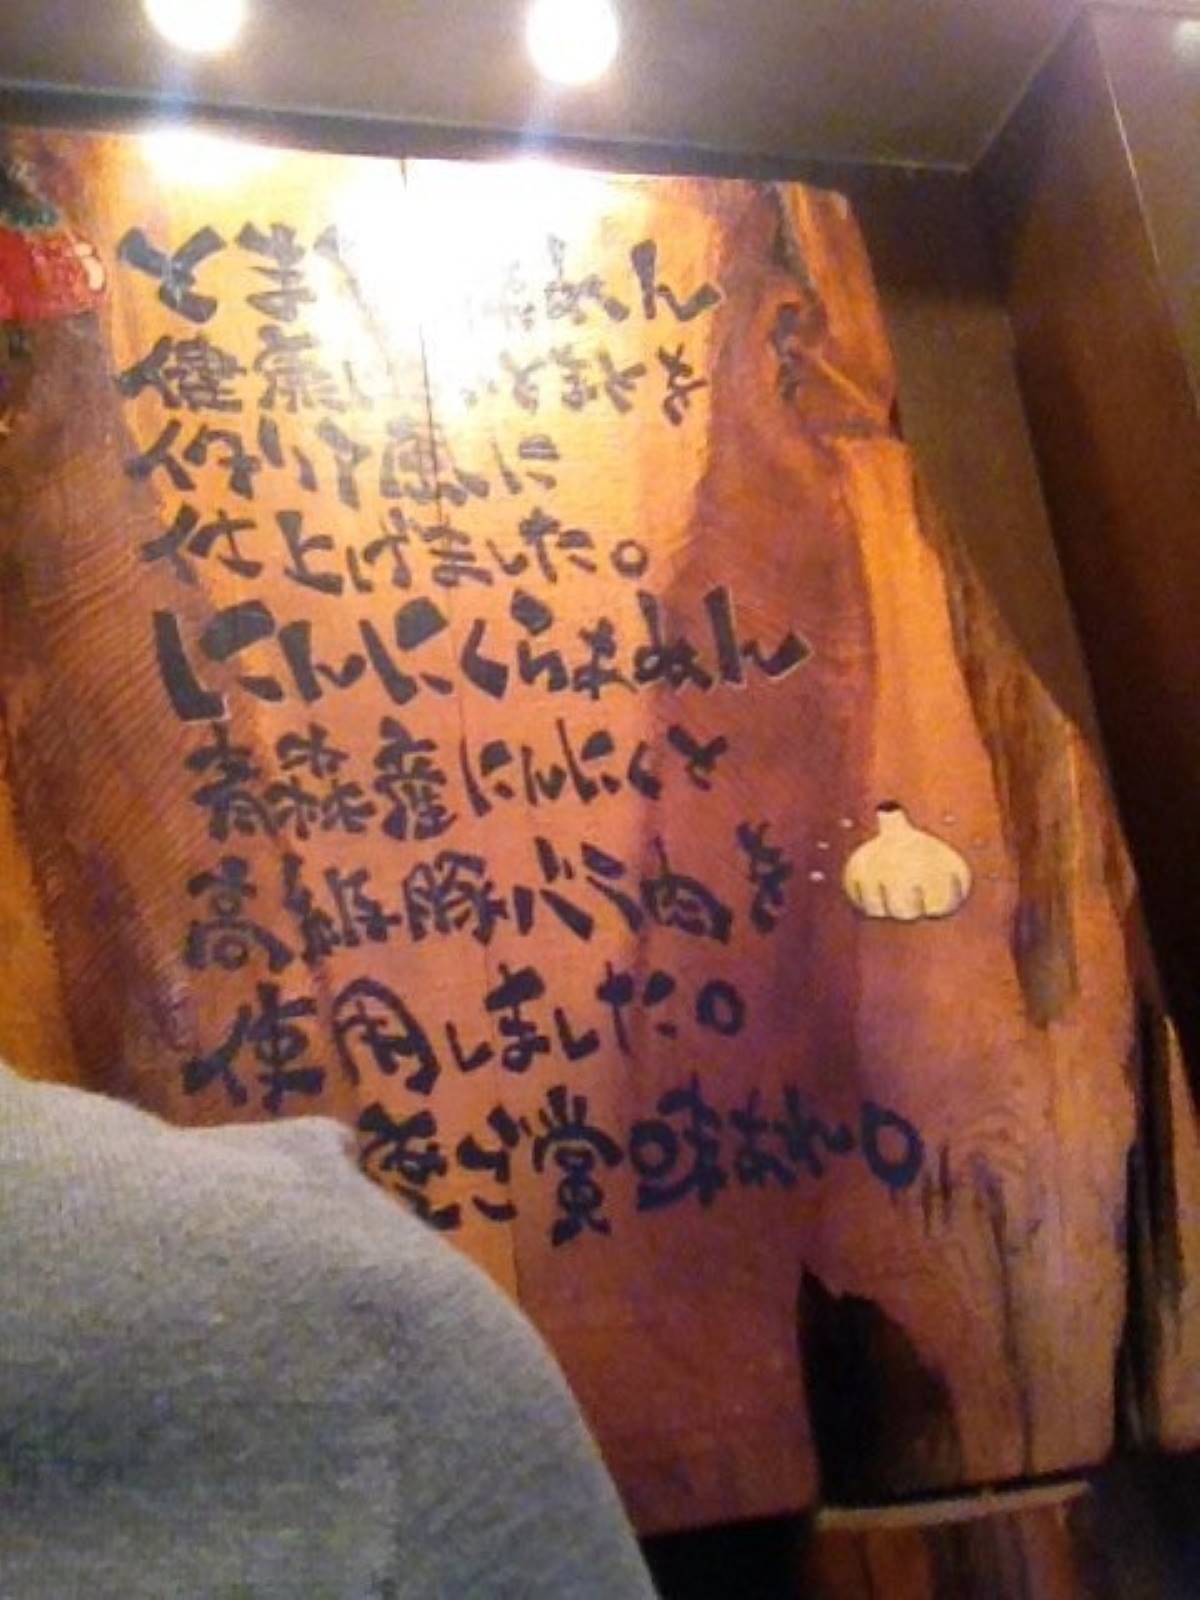 とま らぁめん
健康 いとまとを
伊太利風に
仕上げました。
にんにくらぁめん
青森産にんにくと
高級豚バラ肉を
使用しました。
ぜひご賞味あれ。